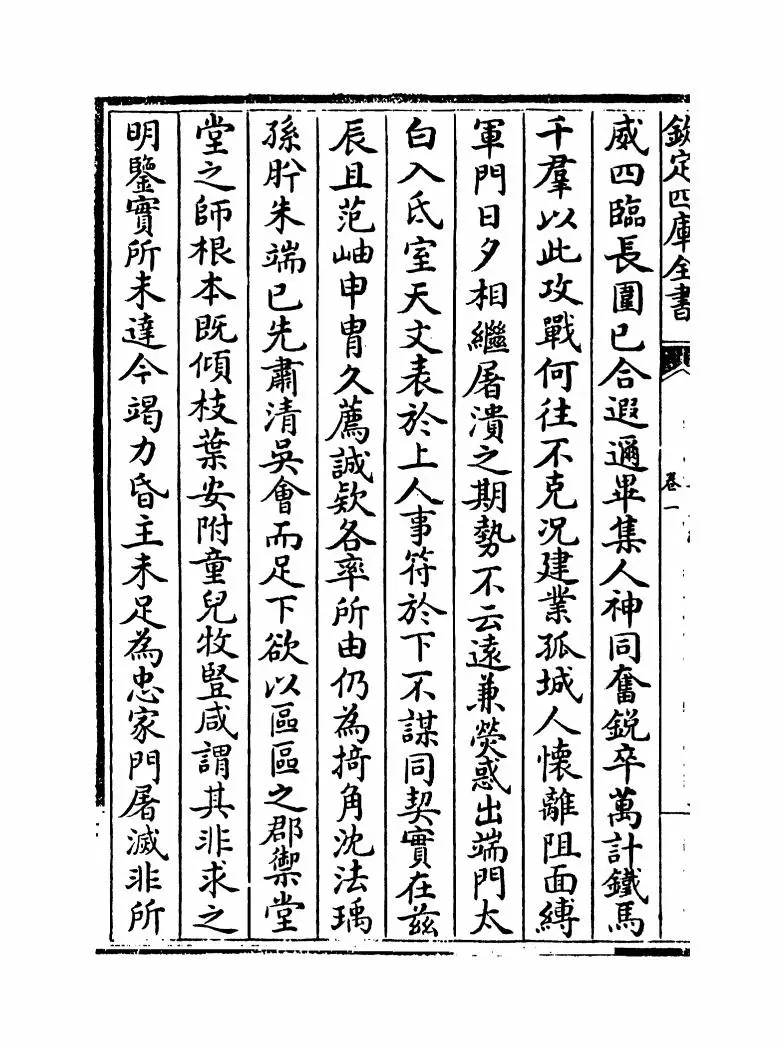 欽定四庫全書
卷一
威四臨長圍已合遐邇畢集人神同奮鋭卒萬計鐵馬
千羣以此攻戰何往不克况建業孤城人懐離阻面縛
軍門日夕相繼屠潰之期勢不云遠兼熒惑出端門太
白入氐室天文表於上人事符於下不謀同契實在兹
辰且范岫申胄久薦誠欵各率所由仍為掎角沈法瑀
孫肸朱端已先肅清吳會而足下欲以區區之郡禦堂
堂之師根本既傾枝葉安附童兒牧豎咸謂其非求之
明鑒實所未達今竭力昏主未足為忠家門屠滅非所